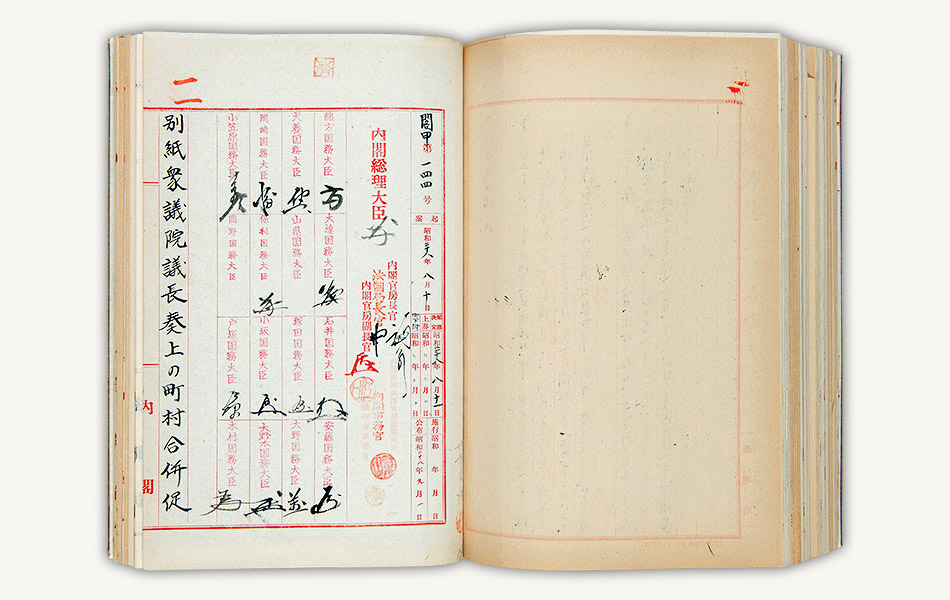 二
閣甲第一四四号
起案
昭和二十八年八月十日
閣議決定昭和二十八年八月十一日
上奏昭和 年 月 日
施行昭和 年 月 日
公布昭和二十八年九月一日
内閣官房長官
法制局長官
内閣官房副長官
内閣総理大臣
内閣事務官
緒方国務大臣
大達国務大臣
石井国務大臣
安藤国務大臣
犬養国務大臣
山県国務大臣
塚田国務大臣
大野国務大臣
岡崎国務大臣
保利国務大臣
小坂国務大臣
大野木国務大臣
小笠原国務大臣
岡野国務大臣
戸塚国務大臣
木村国務大臣
別紙衆議院議長奏上の町村合併促
内閣